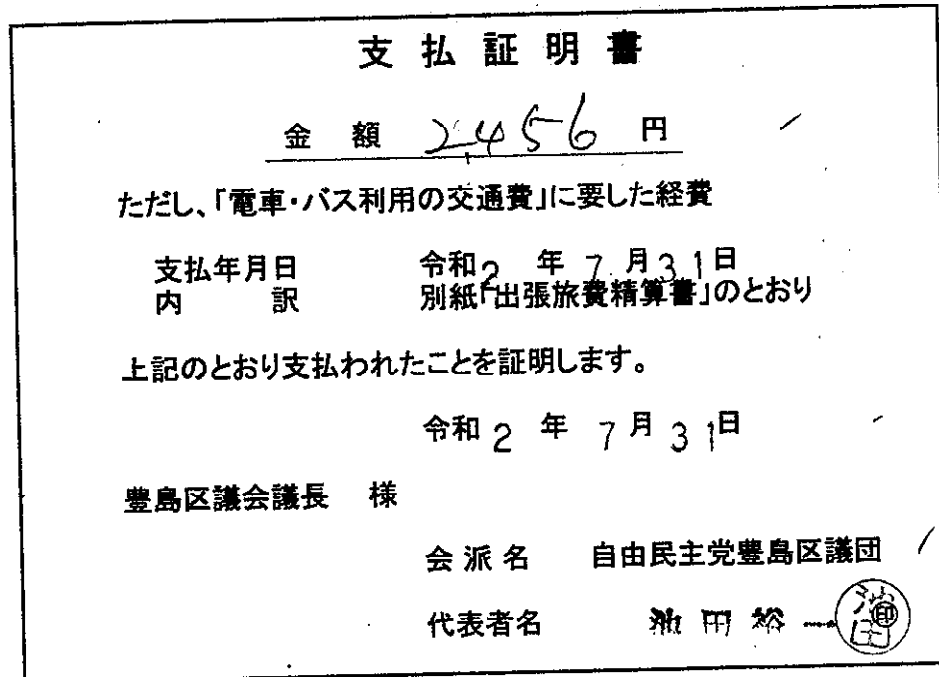 支払証明書
金額 2,456 円
ただし、「電車・バス利用の交通費」に要した経費
支払年月日 令和2年7月31日
内訳 別紙「出張旅費精算書」のとおり
上記のとおり支払われたことを証明します。
令和2年7月31日
豊島区議会議長 様
会派名 自由民主党豊島区議団
代表者名 池田裕一 池田 印